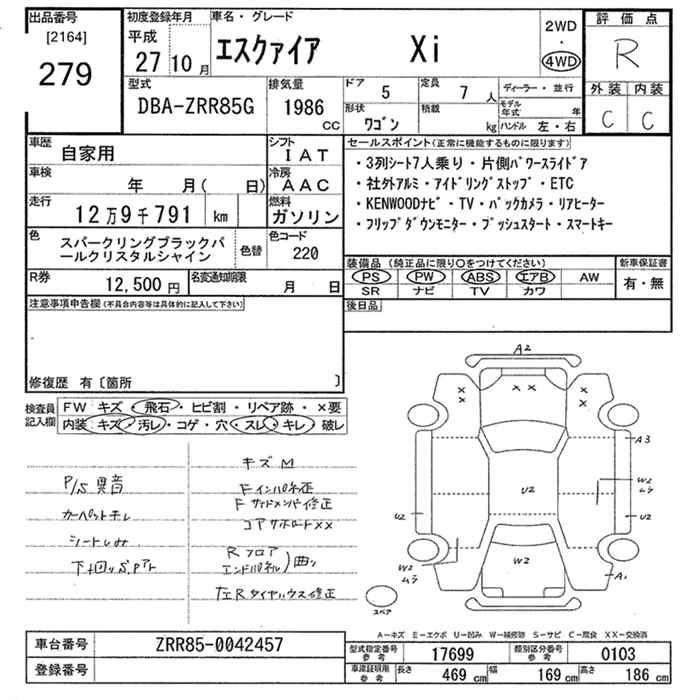 出品番号 初度登録年月 車名・グレード 評価点
[2164] 平成 2WD
279 27 10月 エスクァイア Xi ・ 4WD R
型式 排気量 ドア 5 定員 7人 ディーラー・並行 外装 内装
DBA-ZRR85G 1986 cc 形状 ワゴン 積載 kg モデル年式 年 C C
ハンドル 左・右
車歴 自家用 シフト IAT セールスポイント(正常に機能するものに限ります)
車検 年 月( 日) 冷房 AAC ・3列シート7人乗り・片側パワースライドア
・社外アルミ・アイドリングストップ・ETC
走行 12万9千791 km 燃料 ガソリン ・KENWOODナビ・TV・バックカメラ・リアヒーター
・フリップダウンモニター・プッシュスタート・スマートキー
色 スパークリングブラックパ 色替 色コード
ールクリスタルシャイン 220
装備品(純正品に限り○をつけてください) 新車保証書
R券 12,500円 名変通知期限 月 日 PS PW ABS エアB AW 有・無
SR ナビ TV カワ
注意事項申告欄(不具合内容等は具体的に記入して下さい) 後日品
修復歴 有〔箇所 〕
検査員 FW キズ・飛石・ヒビ割・リペア跡・×要
記入欄 内装・キズ・汚レ・コゲ・穴・スレ・キレ・破レ
キズM
P/S異音
F インパネ修正
F サイドメンバー修正
カーペットヨレ
コアサポート××
シートしみ
R フロア
エンドパネル)曲り
下回りS,Pアト
左Rタイヤハウス修正
A2
× × × ×
× ×
A3
W2
ムラ
U2 U2 U2
W2 W2
ムラ
A1
スペア
A-キズ E-エクボ U-凹み W-補修跡 S-サビ C-腐食 XX-交換済
車台番号 ZRR85-0042457 型式指定番号 参考 17699 類別区分番号 参考 0103
登録番号 車庫証明用 参考 長さ 469 cm 幅 169 cm 高さ 186 cm